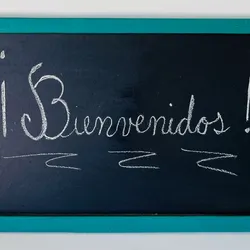 ¡Bienvenidos!